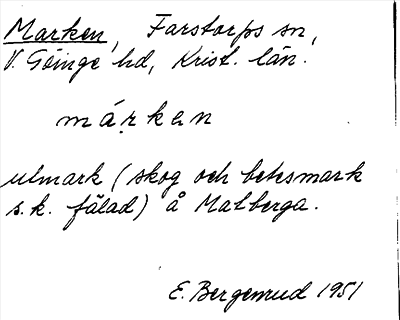 Marken, Farstorps sn,
V. Göinge hd, Krist. län.
márken
utmark (skog och betesmark
s.k. fälad) å Matberga.
E. Bergemud 1951